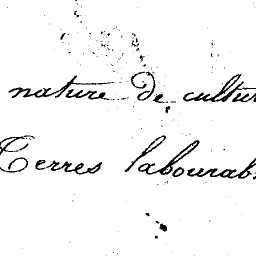 nature de cultur
Terres labourab